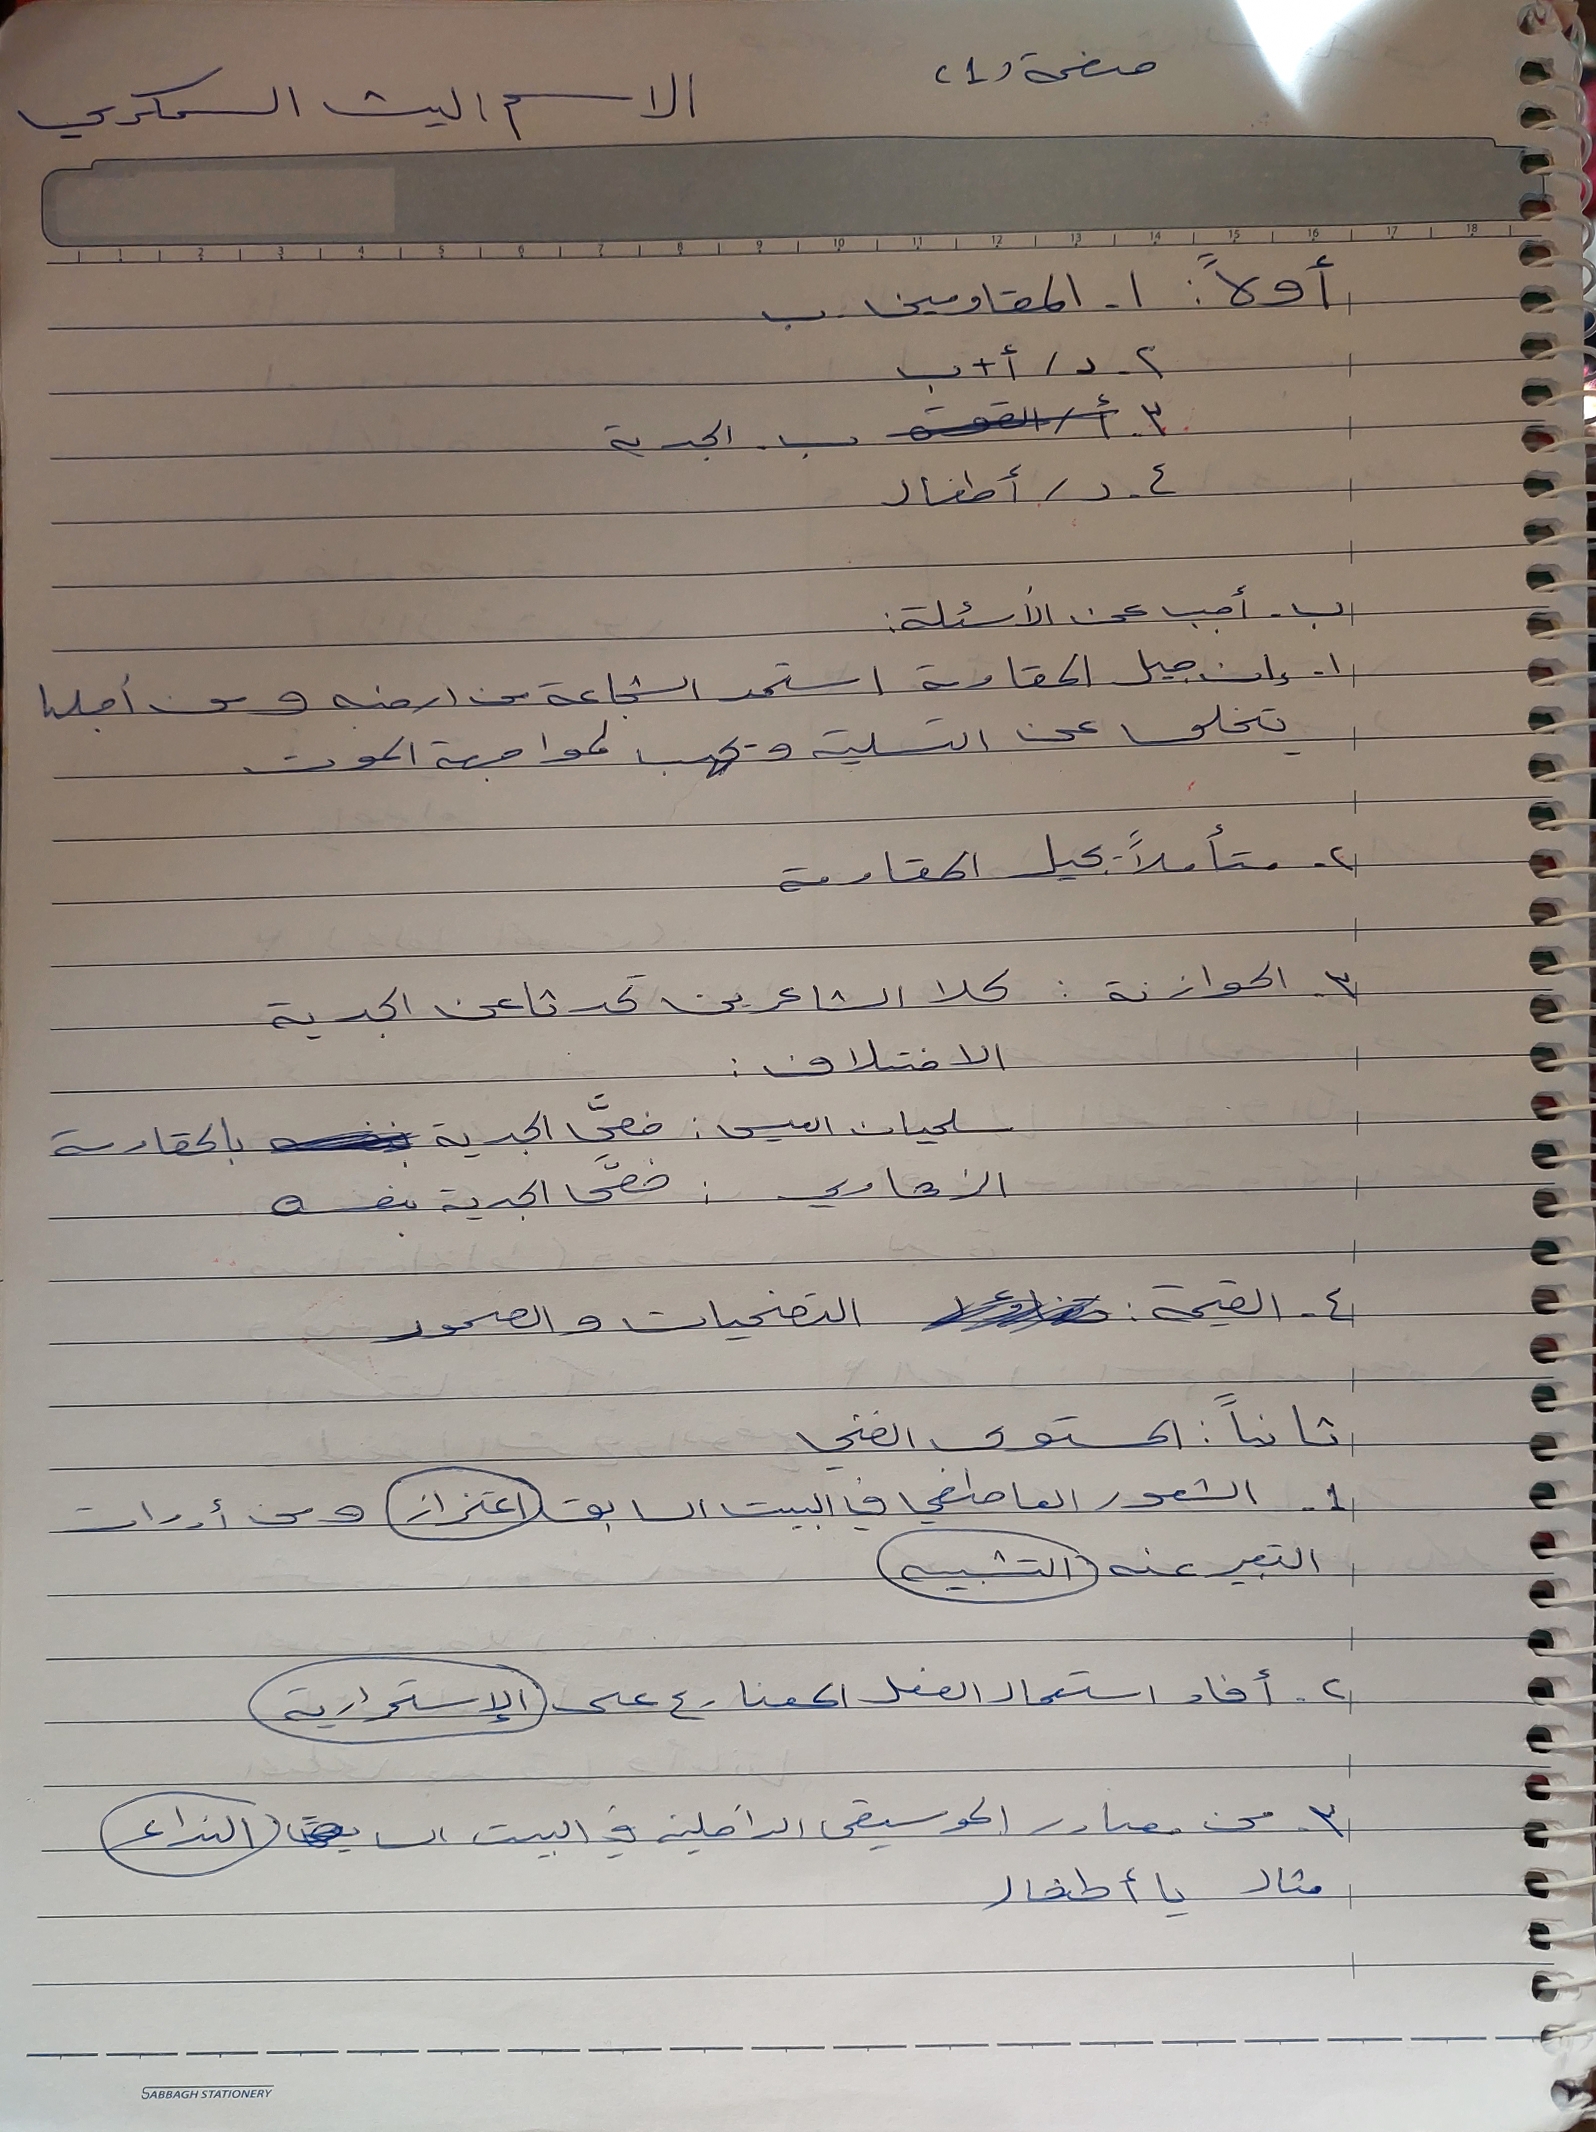 صفحة (1)
الاسم اليث السكري
أولاً: ١- المقاومين ب
٢- د / أ + ب
٣- أ / القوة ب- الحرية
٤- د / أطفال
ب- أجب عن الأسئلة:
١- إن جيل المقاومة استمد الشجاعة من ارضه ومن أجلها
يتخلى عن التسلية و لمواجهة الموت
٢- متأملاً بجيل المقاومة
٣- الموازنة: كلا الشاعرين تحدثا عن الحرية
الاختلاف:
سليمان العيسى: خصَّ الحرية بالمقاومة
الزهاوي: خصَّ الحرية بنفسه
٤- القيمة: التضحيات والصمود
ثانياً: المستوى الفني
1- الشعور العاطفي في البيت السابق (اعتزاز) ومن أدوات
التعبير عنه (التشبيه)
٢- أفاد استعمال الفعل المضارع على (الإستمرارية)
٣- من مصادر الموسيقى الداخلية في البيت السابق (النداء)
مثال يا أطفال
SABBAGH STATIONERY